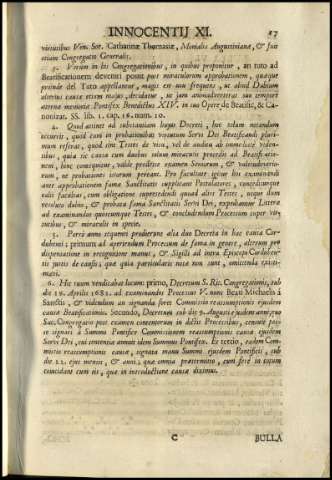 INNOCENTIJ XI.
virtutibus Ven. Sor. Catharinæ Thomasiæ, Monialis Augustinianæ, & fuit
etiam Congregatio Generalis.
3. Verùm in iis Congregationibus, in quibus proponitur, an tuto ad
Beatificationem deveniri possit post miraculorum approbationem, quæque
proindè del Tuto appellantur, magis est non frequens, ut dind Dubium
alterius causæ etiam majus, decidatur, ut jam animadvertimus suo tempore
Pontifex Benedictus XIV. in suo Opere de Beatific. & Ca-
noniz. SS. lib. 1. cap. 16. num. 10.
4. Quod attinet ad substantiam hujus Decreti, hoc solum notandum
occurrit, quod cum in probationibus virtutum Servi Dei Beatificandi pluri-
mum referat, quod sint Testes de visu, vel de auditu ab immediatè viden-
tibus, quia sic causa cum duobus solum miraculis procedit ad Beatificatio-
nem, hinc consequitur, valdè prodesse examen Senum, & valetudinario-
rum, ne probationes interim pereant. Pro facultate igitur hos examinandi
antè approbationem famæ Sanctitatis supplicant Postulatores, concedimusque
Testes,
& probata fama Sanctitatis Servi Dei, expediantur Litteræ
ad examinandos quoscumque Testes, & concludendum Processum super vir-
tutibus, & miraculis in specie.
5. Porrò anno sequenti prodierunt alia duo Decreta in hac causa Cor-
dubensi; primum ad aperiendum Processum de fama in genere, alterum pro
dispensatione in recognitione manus, & Sigilli
juxta de causis; quæ quia particularis notæ non sunt, omittenda existi-
mavi.
6. Hic tamen vendicabat locum: primo, Decretum S. Rit. Congregationis, sub
die 18. Aprilis 1682. ad examinandum Processus V. nunc Beati Michaelis à
Sanctis, & videndum an signanda foret Commissio reassumptionis ejusdem
causæ Beatificationis. Secundò, Decretum sub die 9. Augusti ejusdem anni, quo
Sac. Congregatio post examen contentorum in dictis Processibus, censuit pos-
se signari à Summo Pontifice Commissionem reassumptionis causæ ejusdem
Servi Dei, cui sententiæ annuit idem Summus Pontifex. Et tertio, eadem Com-
missio reassumptionis causæ, signata manu Summi ejusdem Pontificis, sub
die 22. ejus mensis, & anni: quæ omnia prætermitto, cum ferè in totum
coincidant cum iis, quæ in introductione causæ diximus.
C
BULLA